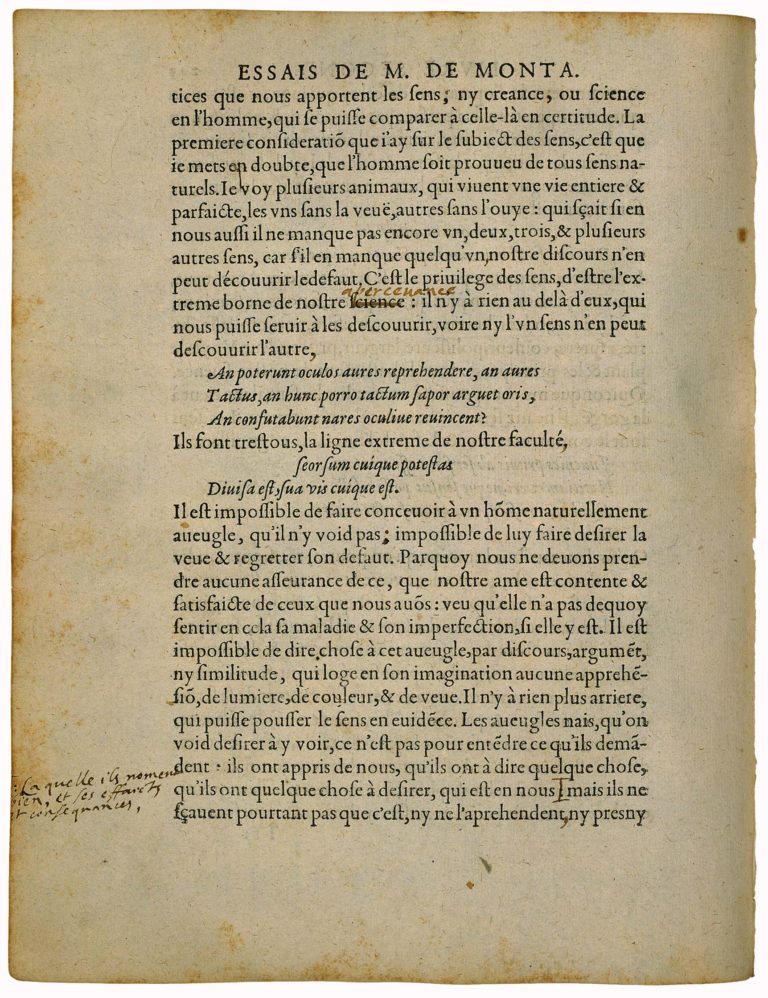 ESSAIS DE M. DE MONTA.
tices que nous apportent les ſens; ny creance, ou ſcience
en l'homme, qui ſe puiſſe comparer à celle-là en certitude. La
premiere conſideratiõ que i'ay ſur le ſubiect des ſens, c'eſt que
ie mets en doubte, que l'homme ſoit prouueu de tous ſens na-
turels. Ie voy pluſieurs animaux, qui viuent vne vie entiere &
parfaicte, les vns ſans la veuë, autres ſans l'ouye : qui ſçait ſi en
nous auſſi il ne manque pas encore vn, deux, trois, & pluſieurs
autres ſens, car s'il en manque quelqu'vn, noſtre diſcours n'en
peut découurir le defaut, C'eſt le priuilege des ſens, d'eſtre l'ex-
apercevance
treme borne de noſtre ſcience : il n'y à rien au delà d'eux, qui
nous puiſſe ſeruir à les deſcouurir, voire ny l'vn ſens n'en peut
deſcouurir l'autre,
An poterunt oculos aures reprehendere, an aures
Tactus, an hunc porro tactum ſapor arguet oris,
An confutabunt nares oculiue reuincent?
Ils font treſtous, la ligne extreme de noſtre faculté,
ſeorſum cuique poteſtas
Diuiſa eſt, ſua vis cuique eſt.
Il eſt impoſſible de faire conceuoir à vn hõme naturellement
aueugle, qu'il n'y void pas; impoſſible de luy faire deſirer la
veue & regretter ſon defaut. Parquoy nous ne deuons pren-
dre aucune aſſeurance de ce, que noſtre ame eſt contente &
ſatisfaicte de ceux que nous auõs : veu qu'elle n'a pas dequoy
ſentir en cela ſa maladie & ſon imperfection, ſi elle y eſt. Il eſt
impoſſible de dire choſe à cet aueugle, par diſcours, argumẽt,
ny ſimilitude, qui loge en ſon imagination aucune apprehẽ-
ſiõ, de lumiere, de couleur, & de veue. Il n'y à rien plus arriere,
qui puiſſe pouſſer le ſens en euidẽce. Les aueugles nais, qu'on
void deſirer à y voir, ce n'eſt pas pour entẽdre ce qu'ils demã-
dent : ils ont appris de nous, qu'ils ont à dire quelque choſe,
qu'ils ont quelque choſe à deſirer, qui eſt en nous I mais ils ne
ſçauent pourtant pas que c'eſt, ny ne l'aprehendent, ny pres ny
La quelle ils noment
bien, et ses effaicts
et consequances,